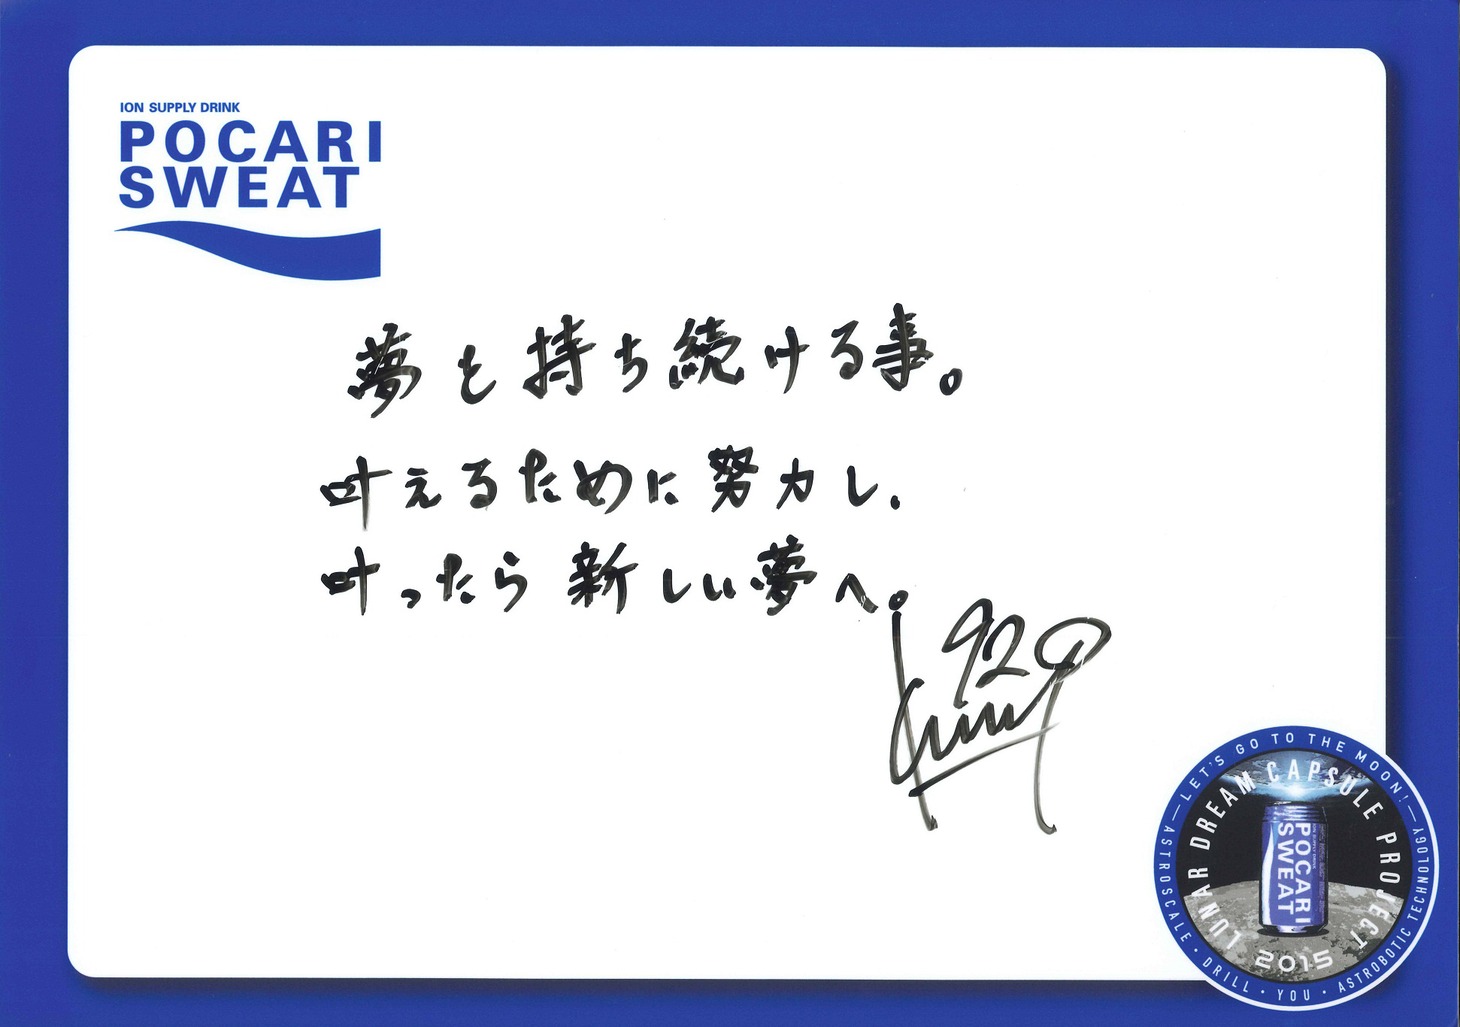 ION SUPPLY DRINK
POCARI
SWEAT
夢を持ち続ける事。
叶えるために努力し、
叶ったら新しい夢へ。
92
LET'S GO TO THE MOON!
LUNAR DREAM CAPSULE PROJECT
POCARI
SWEAT
2015
ASTROSCALE・DRILL・YOU・ASTROBOTIC TECHNOLOGY